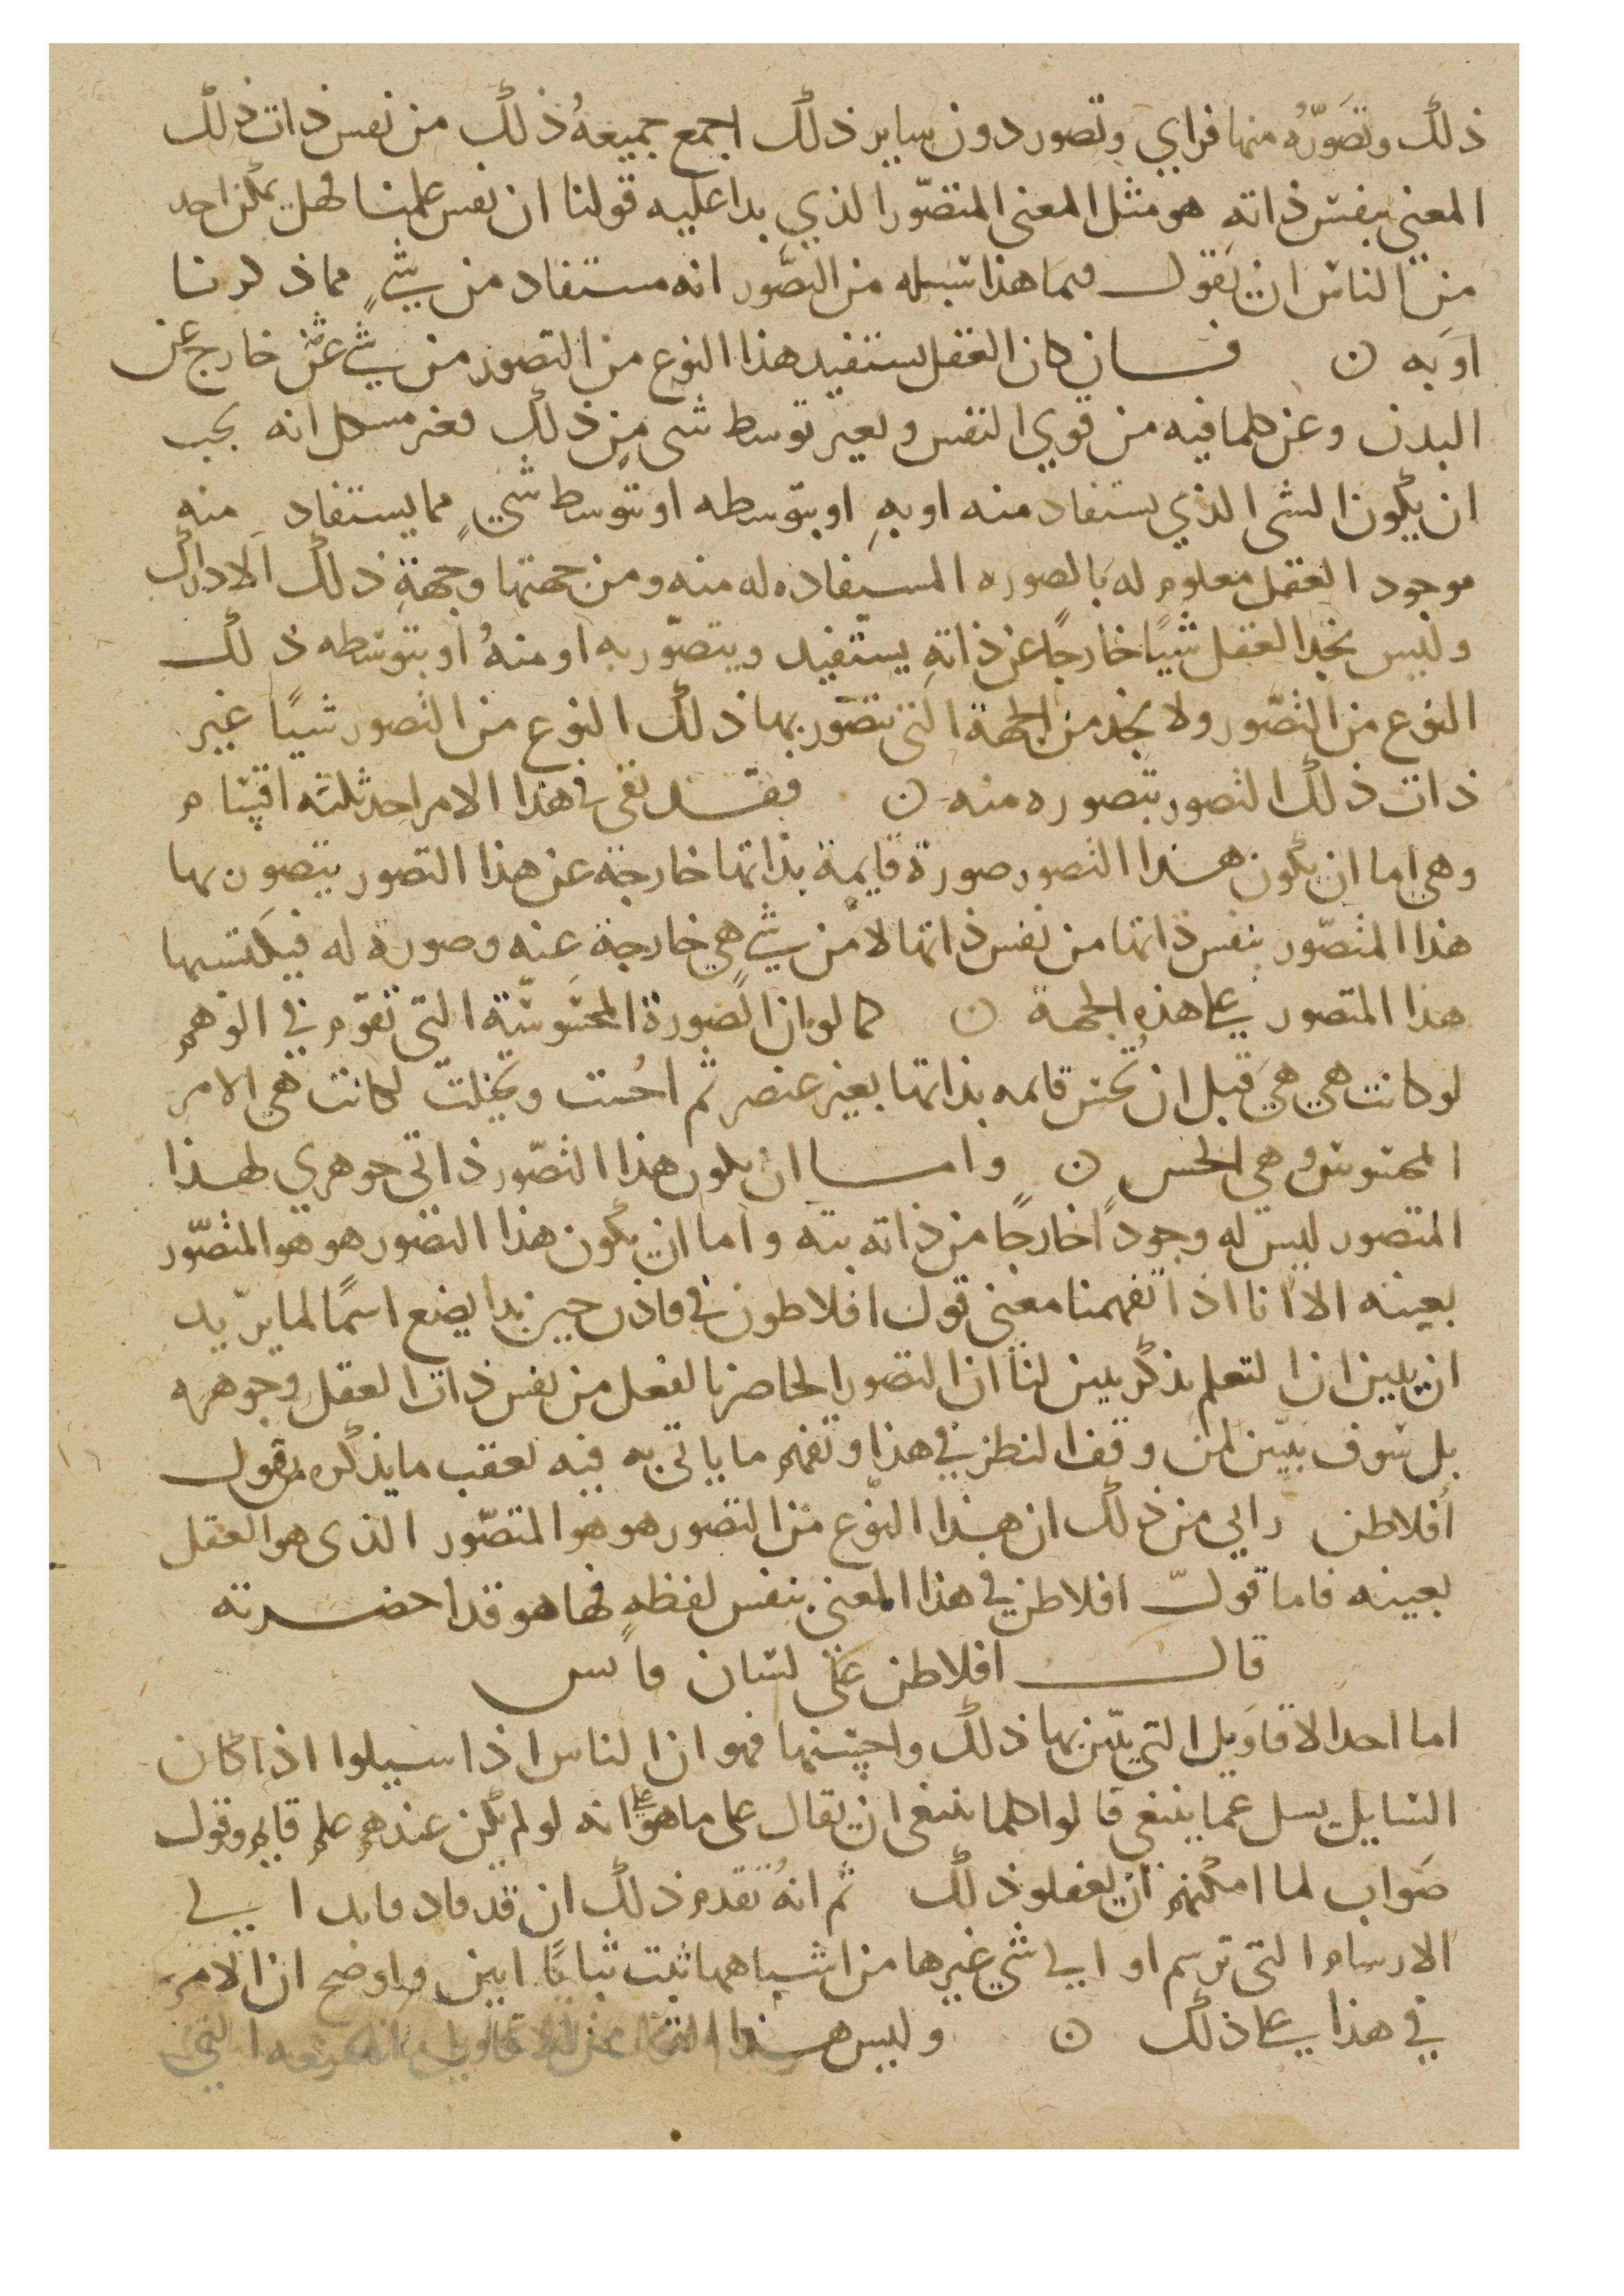 ذلك وتصَوّرُه منها فراي وتصور دون ساير ذلك اجمع جميعهُ ذلك من نفس ذات ذلك
المعني بنفس ذاتهِ هو مثل المعني المتصّور الذي بدا عليه قولنا ان نفس علمنا فهل يمكن احد
من الناس ان يقول فيما هذا سبيله من التصَّور انه مستفاد من شيءٍ مما ذكرنا
اوَ به ن فان كان العقل يستفيد هذا النوع من التصور من شي خارج عن
البدن وعن كلما فيه من قوي النفس وبغير توسط شي من ذلك فغير مشكل انه يجب
ان يكون الشي الذي يستفاد منه او بهِ او بتوسطه او بتوسط شيٍ مما يستفاد منه
موجود العقل معلوم له بالصوره المستفاده له منه ومن جهتها وجهةِ ذلك الادراك
وليس نجد العقل شيًا خارجًا عن ذاتهِ يستفيد ويتصّور به او منهُ او بتوسطه ذلك
النوع من التصّور ولا نجد من الجهة التي يتصور بها ذلك النوع من التصور شيًا غير
ذات ذلك التصور يتصوره منه ن فقد بقي في هذا الامر احد ثلثه اقسام
وهي اما ان يكون هذا التصور صورة قايمة بذاتها خارجة عن هذا التصور يتصور بها
هذا المتصّور بنفس ذاتها من نفس ذاتها لا من شيٍ هي خارجة عنه وصورة له فيكتسبها
هذا المتصور علي هذه الجهة ن كما لو ان الصورة المحسوسّة التي تقوّم في الوهم
لو كانت هي هي قبل ان تُحس قايمه بذاتها بغير عنصر ثم احُست وتخيلت لكانت هي الامر
المحسوس وهي الحس ن واما ان يكون هذا التصّور ذاتي جوهري لهذا
المتصور ليس له وجودًا خارجًا من ذاته بته واما ان يكون هذا التصور هو هو المتصّور
بعينه الا انا اذا تفهمنا معني قول افلاطون في فاذن حين بدا يضع اسمًا لما يريد
ان يبين ان التعلم تذكر يبين لنا ان التصور الحاصر بالفعل من نفس ذات العقل وجوهره
بل سوف يبّين لمن وقف النظر في هذا وتفهم ما ياتي به فيه بعقب ما يذكره بقول
أفلاطن رايي من ذلك ان هذا النّوع من التصور هو هو المتصّور الذي هو العقل
بعينه فاما قولّ افلاطن في هذا المعني بنفس لفظهِ فها هو قد احضرته
قال افلاطن علي لسان قابس
اما احد الاقاويل التي يبّين بها ذلك واحسنها فهو ان الناس اذا سيلوا اذا كان
السايل يسل عما ينبغي قالوا كلما ينبغي ان يقال علي ما هو علي انه لو لم يكن عندهم علم قايم وقول
صَواب لما امكنهم ان يفعلو ذلك ثم انهُ تقدم ذلك ان قد قاد قايدا الي
الارسام التي ترسم او الي شي غيرها من اشباهها ثبت ثباتًا ابين واوضح ان الامر
في هذا علي ذلك ن وليس هذا التي